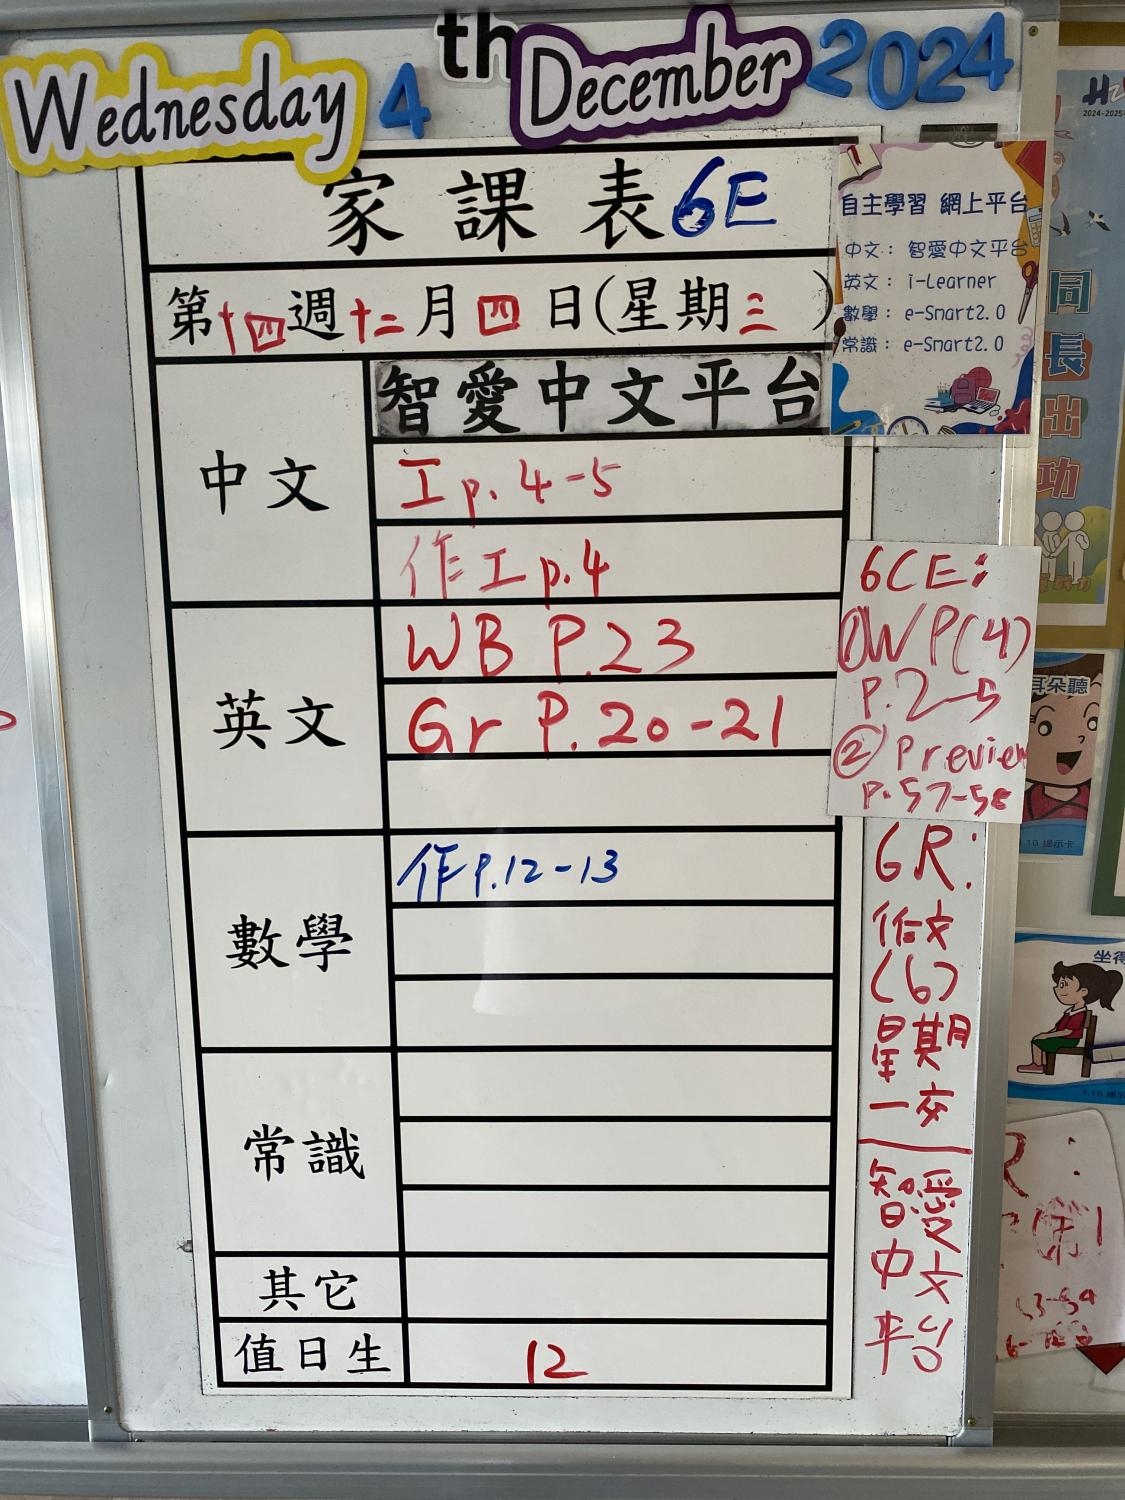 Wednesday 4th December 2024
家課表6E
第十四週十二月四日(星期三)
中文
智愛中文平台
工p.4-5
作工p.4
英文
WB P.23
Gr P.20-21
數學
作P.12-13
常識
其它
值日生
12
自主學習 網上平台
中文： 智愛中文平台
英文： i-Learner
數學： e-Smart2.0
常識： e-Smart2.0
6CE:
①WP(4)
P.2-5
② Preview
P.57-58
6R:
作文
(6)
星期
一交
智愛
中文
平台
2024-2025
同
長
出
功
耳朵聽
1.10 提示卡
坐得
1.10 提示
R: